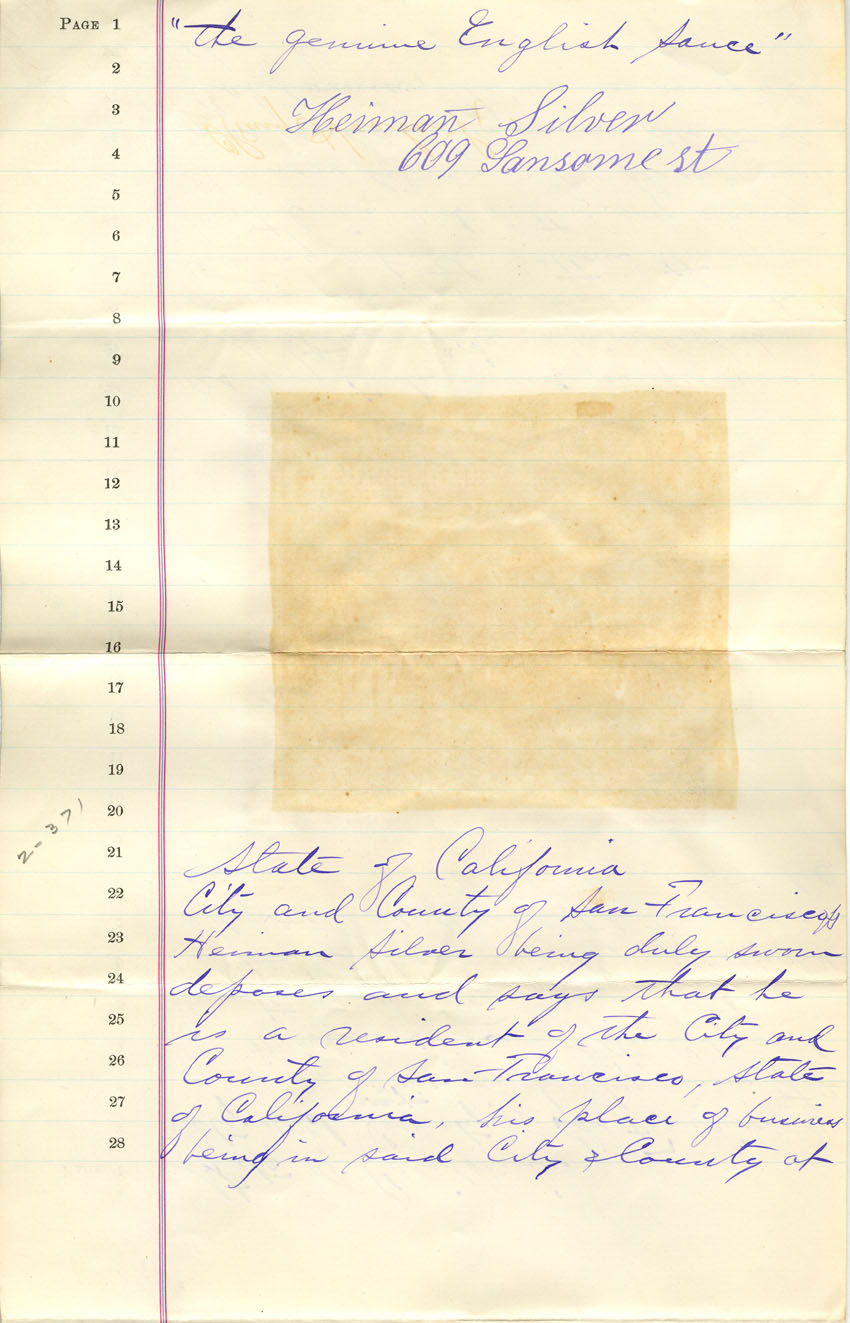 PAGE 1 "the genuine English sauce"
2
3 Heiman Silver
4 609 Sansome st
5
6
7
8
9
10
11
12
13
14
15
16
17
18
19
20
2-371
21 State of California
22 City and County of San Francisco
23 Heiman Silver being duly sworn
24 deposes and says that he
25 is a resident of the City and
26 County of San Francisco, State
27 of California, his place of business
28 being in said City & County at